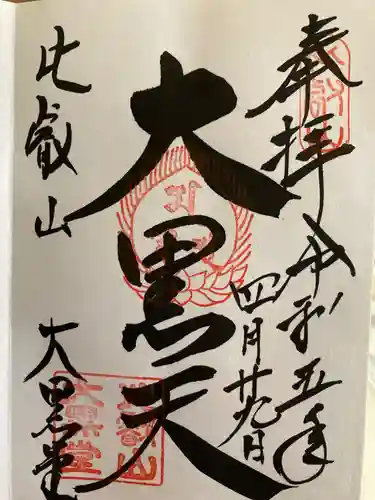 奉拝
令和五年
四月廿九日
大黒天
比叡山
大黒堂
比叡山
大黒堂